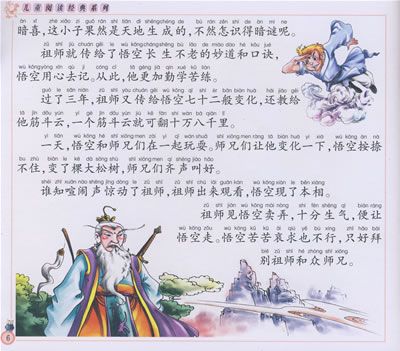 儿童阅读经典系列
àn xǐ zhè xiǎo zi guǒ rán shì tiān dì shēng chéng de bù rán zěn shí dé àn mí ne
暗喜，这小子果然是天地生成的，不然怎识得暗谜呢。
zǔ shī jiù chuán gěi le wù kōng cháng shēng bù lǎo de miào dào hé kǒu jué
祖师就传给了悟空长生不老的妙道和口诀，
wù kōng yòng xīn qù jì cóng cǐ tā gèng jiā qín xué kǔ liàn
悟空用心去记。从此，他更加勤学苦练。
guò le sān nián zǔ shī yòu chuán gěi wù kōng qī shí èr bān biàn huà hái jiāo gěi
过了三年，祖师又传给悟空七十二般变化，还教给
tā jīn dǒu yún yí gè jīn dǒu yún jiù kě fān shí wàn bā qiān lǐ
他筋斗云，一个筋斗云就可翻十万八千里。
yì tiān wù kōng hé shī xiōng men zài yì qǐ wán shuǎ shī xiōng men ràng tā biàn huà yí xià wù kōng àn nà
一天，悟空和师兄们在一起玩耍。师兄们让他变化一下，悟空按捺
bú zhù biàn le kē dà sōng shù shī xiōng men qí shēng jiào hǎo
不住，变了棵大松树，师兄们齐声叫好。
shéi zhī xuān nào shēng jīng dòng le zǔ shī zǔ shī chū lái guān kàn wù kōng xiàn le běn xiàng
谁知喧闹声惊动了祖师，祖师出来观看，悟空现了本相。
zǔ shī jiàn wù kōng mài nòng shí fēn shēng qì biàn ràng
祖师见悟空卖弄，十分生气，便让
wù kōng zǒu wù kōng kǔ kǔ āi qiú yě bù xíng zhǐ hǎo bài
悟空走。悟空苦苦哀求也不行，只好拜
bié zǔ shī hé zhòng shī xiōng
别祖师和众师兄。
6